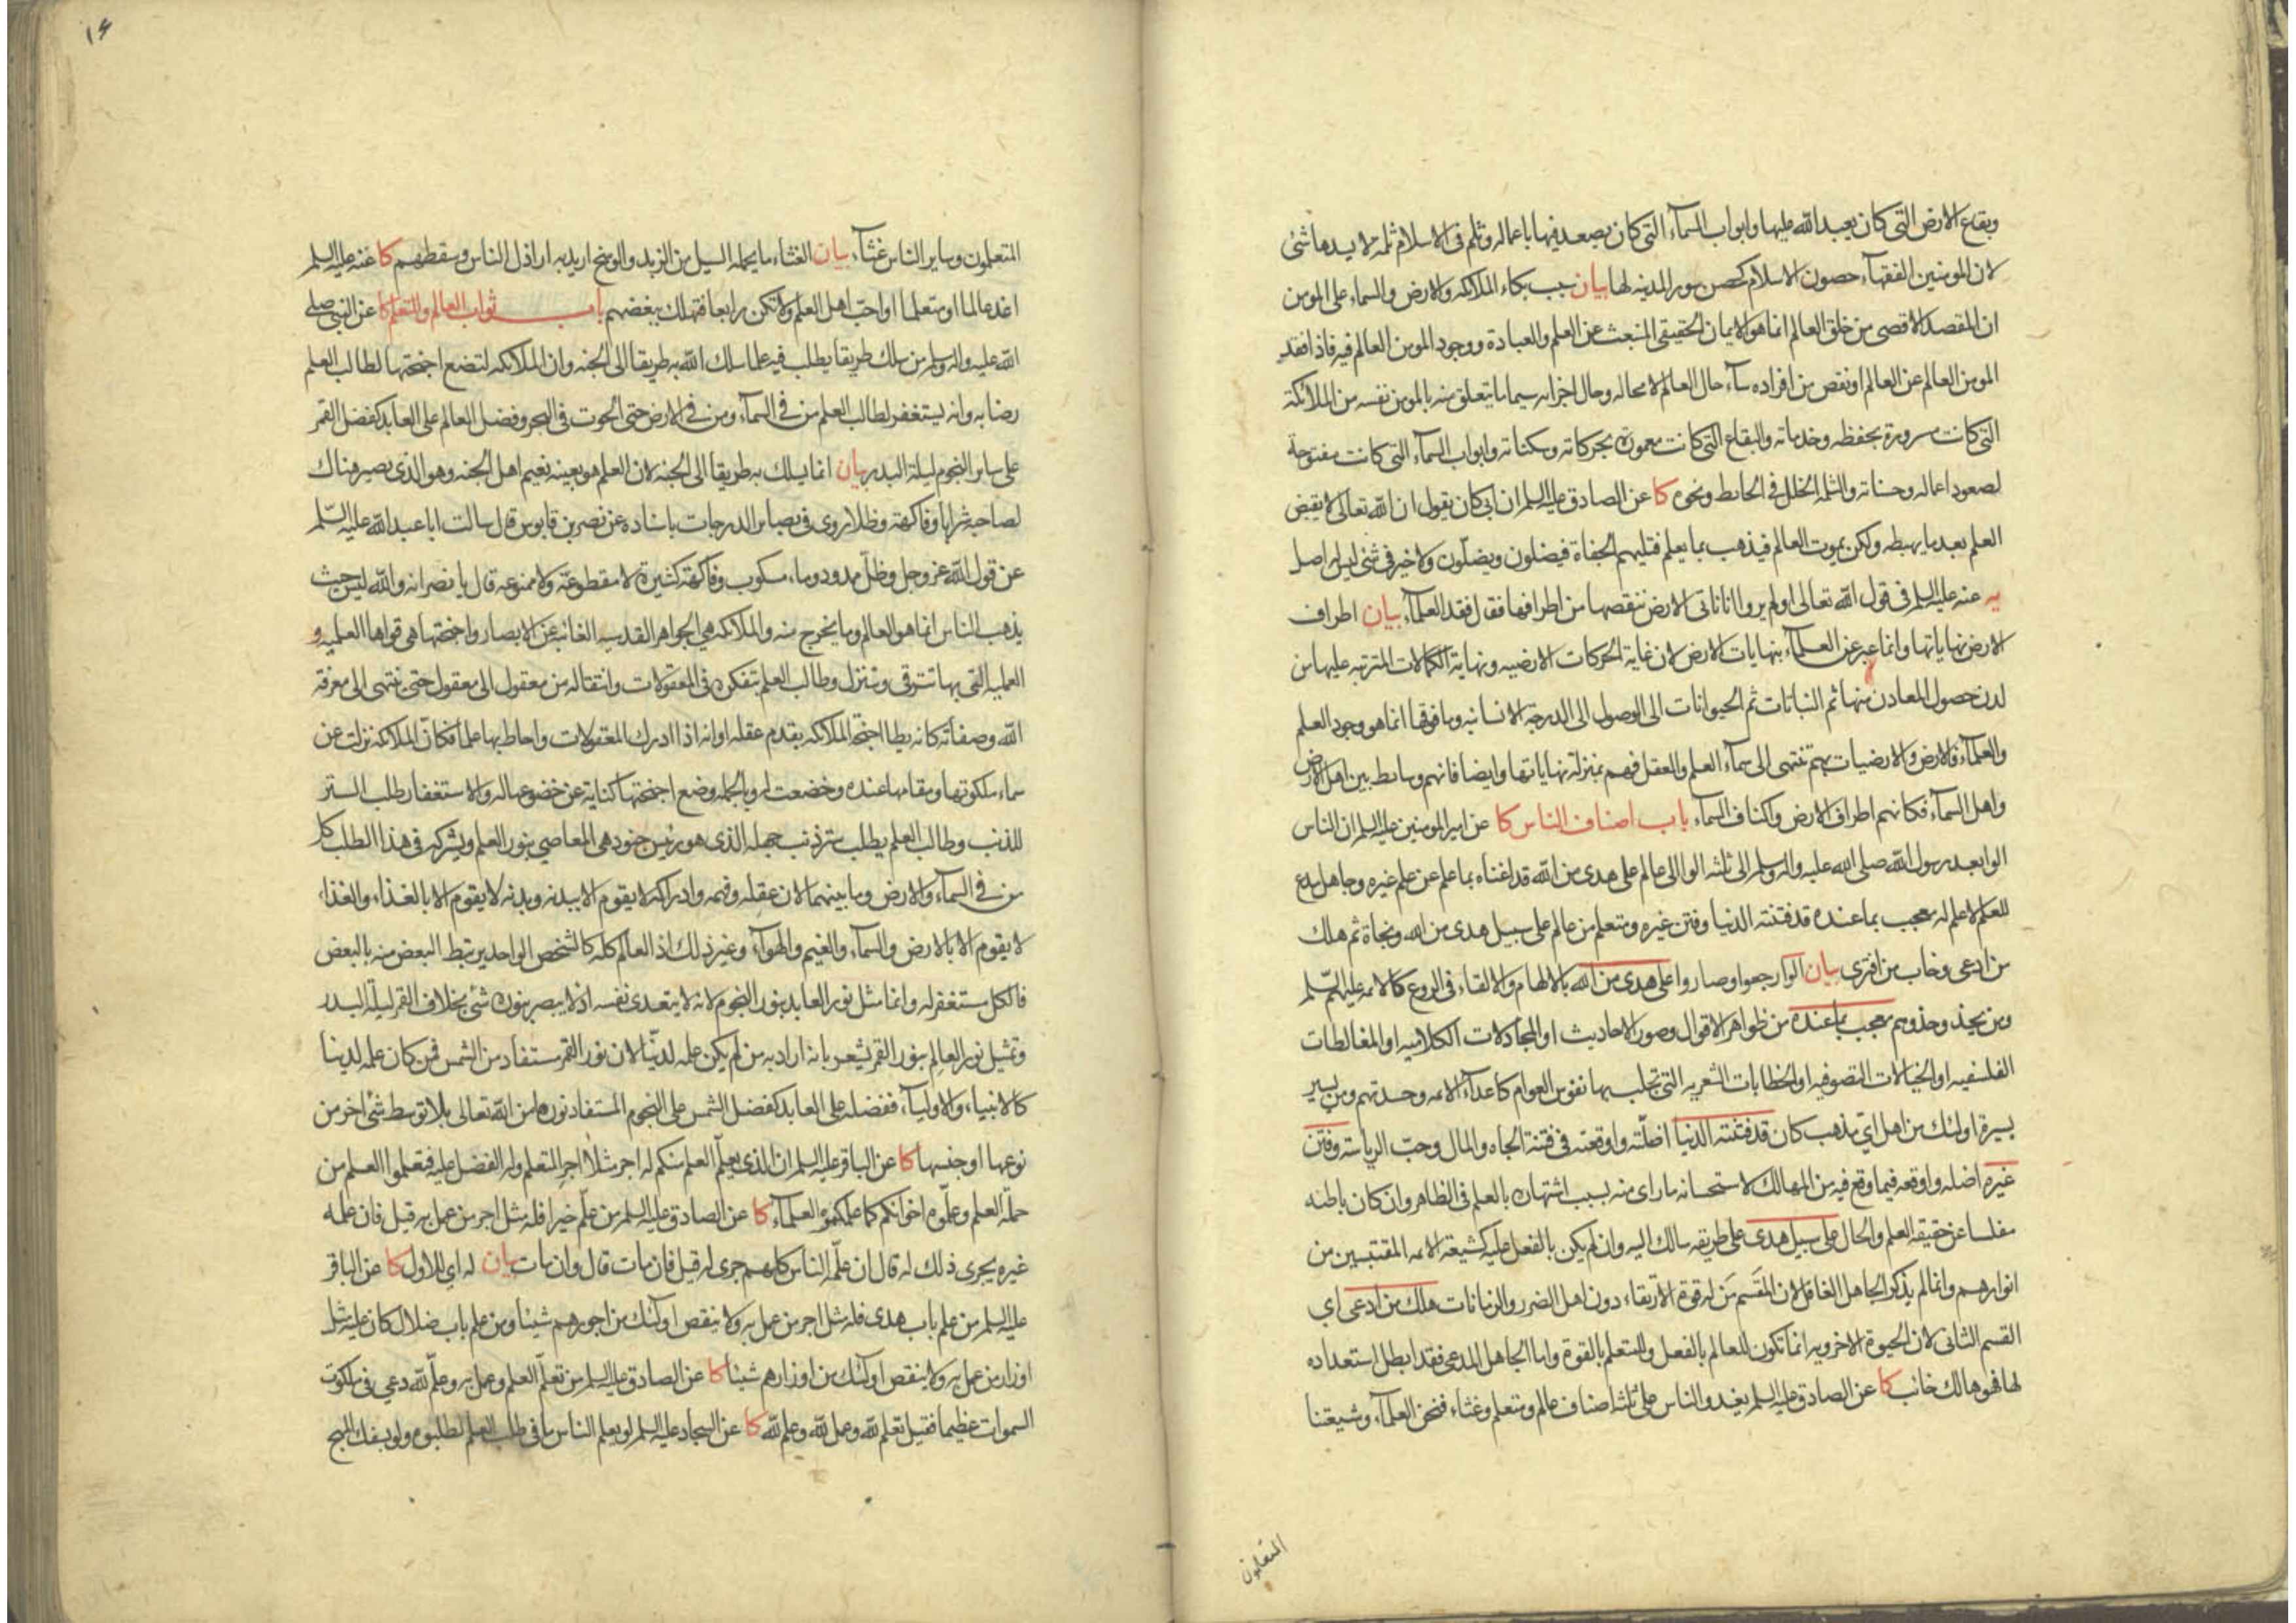 وبقاع الارض التي كان يعبد الله عليها وابواب السمآء التي كان يصعد فيها باعماله وثلم في الاسلام ثلمة لا يسدها شئ
لان المومنين الفقهآء حصون الاسلام كحصن سور المدينه لها بيان سبب بكاء الملائكه والارض والسماء على المومن
ان المقصد الاقصى من خلق العالم انما هو الايمان الحقيقي المنبعث عن العلم والعبادة ووجود المومن العالم فيه فاذا فقد
المومن العالم عن العالم او نقص من افراده سآء حال العالم لا محاله وحال اجزائه سيما ما يتعلق منه بالمومن نفسه من الملائكة
التي كانت مسرورة بحفظه وخدماته والبقاع التي كانت معمورة بحركاته وسكناته وابواب السمآء التي كانت مفتوحة
لصعود اعماله وحسناته والثلمه الخلل في الحائط ونحوه كا عن الصادق عليه السلم ان ابي كان يقول ان الله تعالى لا يقبض
العلم بعد ما يهبطه ولكن يموت العالم فيذهب بما يعلم فتليهم الجفاة فيضلون ويضلّون ولا خير في شئ ليس له اصل
يه عنه عليه السلم في قول الله تعالى اولم يروا انا ناتي الارض ننقصها من اطرافها فقال فقد العلمآء بيان اطراف
الارض نهاياتها وانما عبر عن العلمآء بنهايات الارض لان غاية الحركات الارضيه ونهاية الكمالات المترتبه عليها من
لدن حصول المعادن منها ثم النباتات ثم الحيوانات الى الوصول الى الدرجة الانسانيه وما فوقها انما هو وجود العلم
والعلمآء فالارض والارضيات بهم تنتهى الى سمآء العلم والعقل فهم بمنزلة نهاياتها وايضا فانهم وسائط بين اهل الارض
واهل السمآء فكانهم اطراف الارض واكناف السمآء باب اصناف الناس كا عن امير المومنين عليه السلم ان الناس
الوا بعد رسول الله صلى الله عليه واله وسلم الى ثلثه الوا الى عالم على هدى من الله قد اغناه بما علم عن علم غيره وجاهل مدع
للعلم لا علم له معجب بما عنده قد فتنته الدنيا وفتن غيره ومتعلم من عالم على سبيل هدى من الله ونجاة ثم هلك
من ادعى وخاب من افترى بيان الوا رجعوا وصاروا على هدى من الله بالالهام والالقاء في الروع كالائمه عليهم السّلم
ومن يحذو حذوهم معجب بما عنده من ظواهر الاقوال وصور الاحاديث او المجادلات الكلاميه او المغالطات
الفلسفيه او الخيالات التصوفيه او الخطابات الشعريه التي تجلب بها نفوس العوام كاعدآء الائمه وحسدتهم ومن يسير
بسيرة اولئك من اهل اي مذهب كان قد فتنته الدنيا اضلّته واوقعته في فتنة الجاه والمال وحبّ الرياسته وفتن
غيره اضله واوقعه فيما وقع فيه من المهالك لاستحسانه ما راى منه بسبب اشتهاره بالعلم في الظاهر وان كان باطنه
مفلسا عن حقيقة العلم والحال على سبيل هدى على طريقه سالك اليه وان لم يكن بالفعل عليه كشيعة الائمه المقتبسين من
انوارهم وانما لم يذكر الجاهل الغافل لان المقسم مَن له قوة الارتقاء دون اهل الضرر والزمانات هلك من ادعى اي
القسم الثاني لان الحيوة الاخرويه انما تكون للعالم بالفعل والمتعلم بالقوة واما الجاهل المدعي فقد ابطل استعداده
لها فهو هالك خائب كا عن الصادق عليه السلم يغدو الناس على ثلثه اصناف عالم ومتعلم وغثاء فنحن العلمآء وشيعتنا
المتعلمون
١٤
المتعلمون وساير الناس غثآء بيان الغثاء ما يحمله السيل من الزبد والوسخ اريد به اراذل الناس وسقطهم كا عنه عليه السلم
اغد عالما او متعلما او احبّ اهل العلم ولا تكن رابعا فتهلك ببغضهم باب ثواب العالم والمتعلم كا عن النبي صلى
الله عليه واله وسلم من سلك طريقا يطلب فيه علما سلك الله به طريقا الى الجنه وان الملائكه لتضع اجنحتها لطالب العلم
رضا به وانه يستغفر لطالب العلم من في السمآء ومن في الارض حتى الحوت في البحر وفضل العالم على العابد كفضل القمر
على ساير النجوم ليلة البدر بيان انما يسلك به طريقا الى الجنه لان العلم هو بعينه نعيم اهل الجنه وهو الذي يصير هناك
لصاحبه شرابا وفاكهة وظلا روى في بصاير الدرجات باسناده عن نصر بن قابوس قال سالت ابا عبد الله عليه السّلم
عن قول الله عز وجل وظلّ ممدود وماء مسكوب وفاكهة كثيرة لا مقطوعة ولا ممنوعه قال يا نصر انه والله ليس حيث
يذهب الناس انما هو العالم وما يخرج منه والملائكه هي الجواهر القدسيه الغائبه عن الابصار واجنحتها هي قواها العلميه و
العمليه التي بها تترقى وتتنزل وطالب العلم بتفكره في المعقولات وانتقاله من معقول الى معقول حتى ينتهى الى معرفة
الله وصفاته كانه يطا اجنحة الملائكه بقدم عقله او انه اذا ادرك المعقولات واحاط بها علما فكانّ الملائكه نزلت عن
سماء ملكوتها ومقامها عنده وخضعت له وبالجمله وضع اجنحتها كناية عن خضوعها له والاستغفار طلب الستر
للذنب وطالب العلم يطلب ستر ذنب جهله الذي هو رئيس جنود هي المعاصي بنور العلم ويشركه في هذا الطلب كل
من في السمآء والارض وما بينهما لان عقله وفهمه وادراكه لا يقوم الا ببدنه وبدنه لا يقوم الا بالغذاء والغذاء
لا يقوم الا بالارض والسمآء والغيم والهوآء وغير ذلك اذ العالم كله كالشخص الواحد يرتبط البعض منه بالبعض
فالكل مستغفر له وانما مثل نور العابد بنور النجوم لانه لا يتعدى نفسه اذ لا يبصر بنوره شئ بخلاف القمر ليلة البدر
وتمثيل نور العالم بنور القمر يشعر بانه اراد به من لم يكن علمه لدنّيا لان نور القمر مستفاد من الشمس فمن كان علمه لدنيا
كالانبياء والاوليآء ففضله على العابد كفضل الشمس على النجوم المستفاد نورها من الله تعالى بلا توسط شئ اخر من
نوعها او جنسها كا عن الباقر عليه السلم ان الذي يعلّم العلم منكم له اجر مثلا اجر المتعلم وله الفضل عليه فتعلموا العلم من
حملة العلم وعلّموه اخوانكم كما علمكموه العلمآء كا عن الصادق عليه السلم من علّم خيرا فله مثل اجر من عمل به قيل فان علمه
غيره يجرى ذلك له قال ان علّمه الناس كلهم جرى له قيل فان مات قال وان مات بيان له اي للاول كا عن الباقر
عليه السلم من علم باب هدى فله مثل اجر من عمل به ولا ينقص اولئك من اجورهم شيئا ومن علم باب ضلال كان عليه مثل
اوزار من عمل به ولا ينقص اولئك من اوزارهم شيئا كا عن الصادق عليه السلم من تعلّم العلم وعمل به وعلّم لله دعي في ملكوت
السموات عظيما فقيل تعلم لله وعمل لله وعلم لله كا عن السجاد عليه السلم لو يعلم الناس ما في طلب العلم لطلبوه ولو بسفك المهج